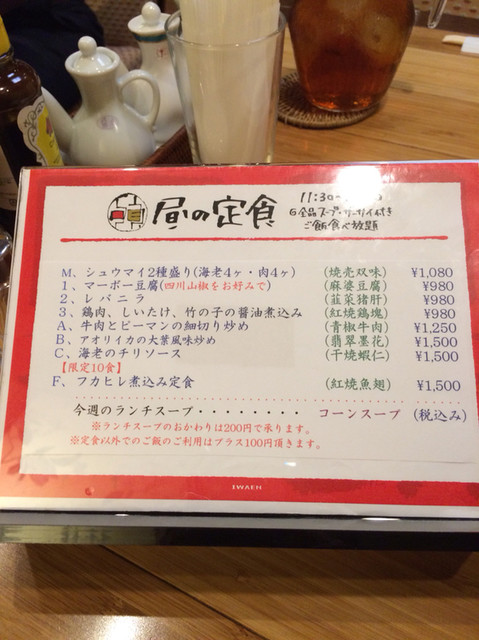 昼の定食
11:30-
全品スープ・ザーサイ付き
ご飯食べ放題
M、シュウマイ2種盛り(海老4ヶ・肉4ヶ) (焼売双味) ¥1,080
1、マーボー豆腐(四川山椒をお好みで) (麻婆豆腐) ¥980
2、レバニラ (韮菜猪肝) ¥980
3、鶏肉、しいたけ、竹の子の醤油煮込み (紅焼鶏塊) ¥980
A、牛肉とピーマンの細切り炒め (青椒牛肉) ¥1,250
B、アオリイカの大葉風味炒め (翡翠墨花) ¥1,500
C、海老のチリソース (干焼蝦仁) ¥1,500
【限定10食】
F、フカヒレ煮込み定食 (紅焼魚翅) ¥1,500
今週のランチスープ・・・・・・・・ コーンスープ (税込み)
※ランチスープのおかわりは200円で承ります。
※定食以外でのご飯のご利用はプラス100円頂きます。
IWAEN